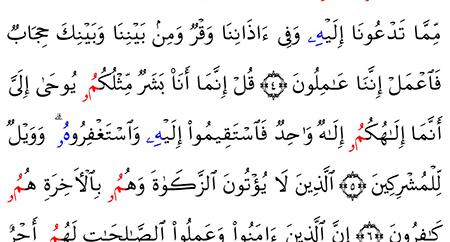 مِّمَّا تَدْعُونَا إِلَيْهِۦ وَفِى ءَاذَانِنَا وَقْرٌ وَمِنۢ بَيْنِنَا وَبَيْنِكَ حِجَابٌ
فَٱعْمَلْ إِنَّنَا عَـٰمِلُونَ ﴿٤﴾ قُلْ إِنَّمَا أَنَا۠ بَشَرٌ مِّثْلُكُمُۥ يُوحَىٰ إِلَىَّ
أَنَّمَا إِلَـٰهُكُمُۥ إِلَـٰهٌ وَٰحِدٌ فَٱسْتَقِيمُوٓا۟ إِلَيْهِۦ وَٱسْتَغْفِرُوهُۥ ۗ وَوَيْلٌ
لِّلْمُشْرِكِينَ ﴿٥﴾ ٱلَّذِينَ لَا يُؤْتُونَ ٱلزَّكَوٰةَ وَهُمُۥ بِٱلْأَخِرَةِ هُمُۥ
كَـٰفِرُونَ ﴿٦﴾ إِنَّ ٱلَّذِينَ ءَامَنُوا۟ وَعَمِلُوا۟ ٱلصَّـٰلِحَـٰتِ لَهُمُۥ أَجْرٌ